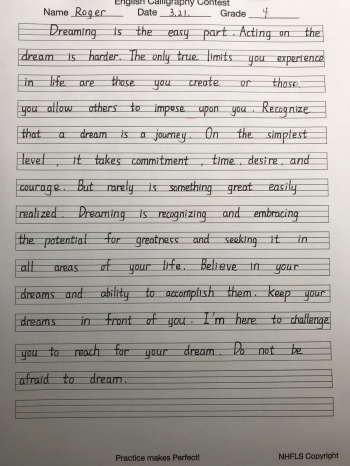 English Calligraphy Contest
Name Roger Date 3.21. Grade 4
Dreaming is the easy part. Acting on the
dream is harder. The only true limits you experience
in life are those you create or those
you allow others to impose upon you. Recognize
that a dream is a journey. On the simplest
level, it takes commitment, time, desire, and
courage. But rarely is something great easily
realized. Dreaming is recognizing and embracing
the potential for greatness and seeking it in
all areas of your life. Believe in your
dreams and ability to accomplish them. Keep your
dreams in front of you. I'm here to challenge
you to reach for your dream. Do not be
afraid to dream.
Practice makes Perfect! NHFLS Copyright